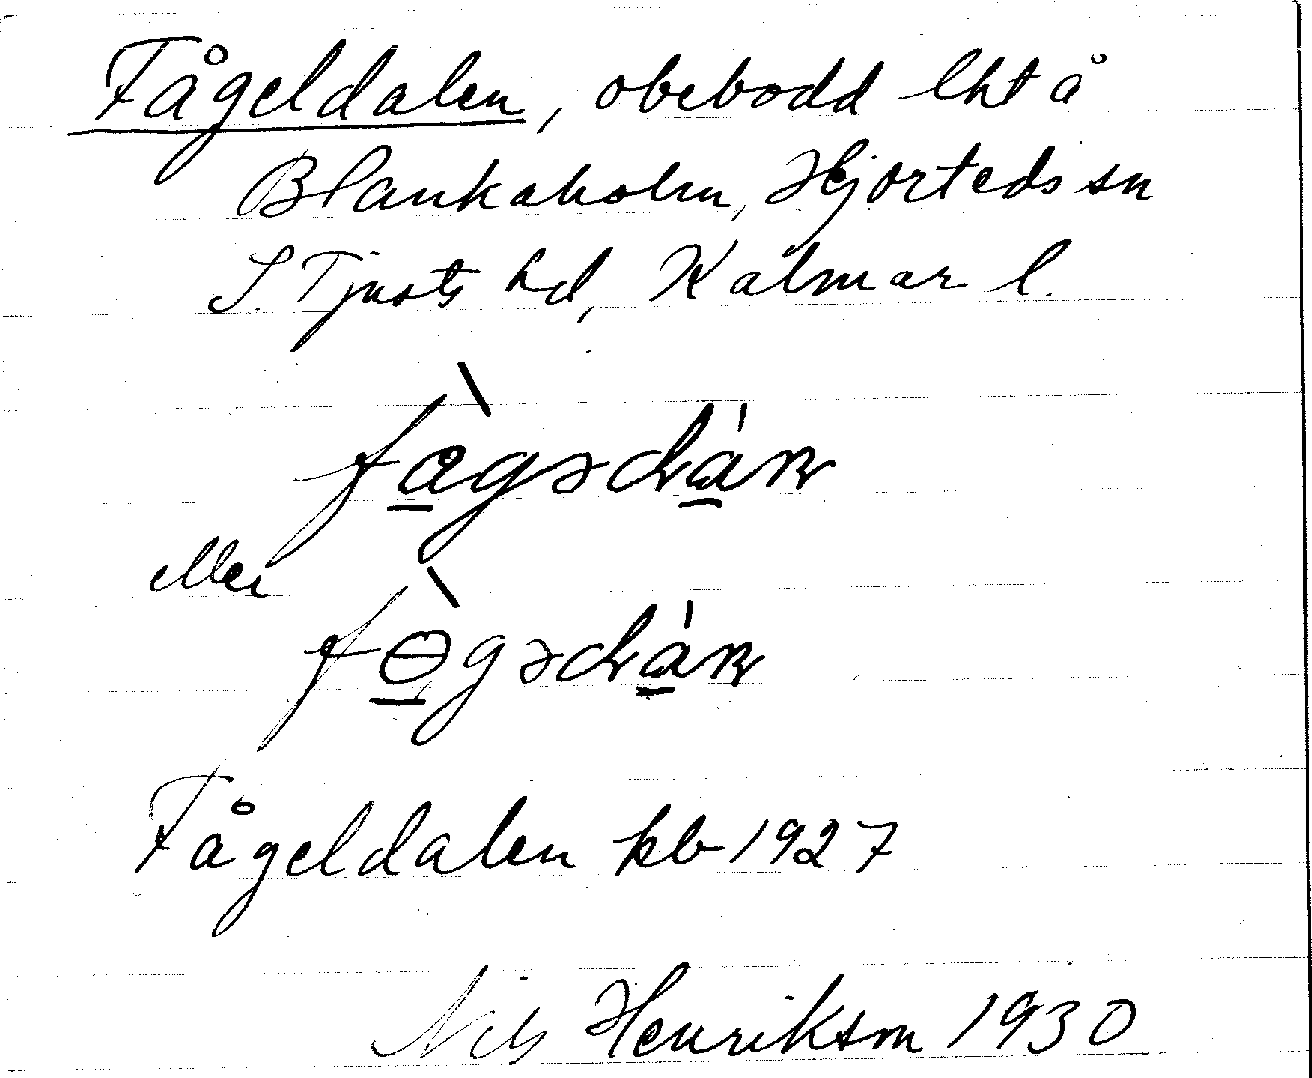 Fågeldalen, obebodd lht å
Blankaholm, Hjorteds sn
S. Tjusts hd, Kalmar l.
eller
Fågeldalen kb 1927
Nils Henrikson 1930